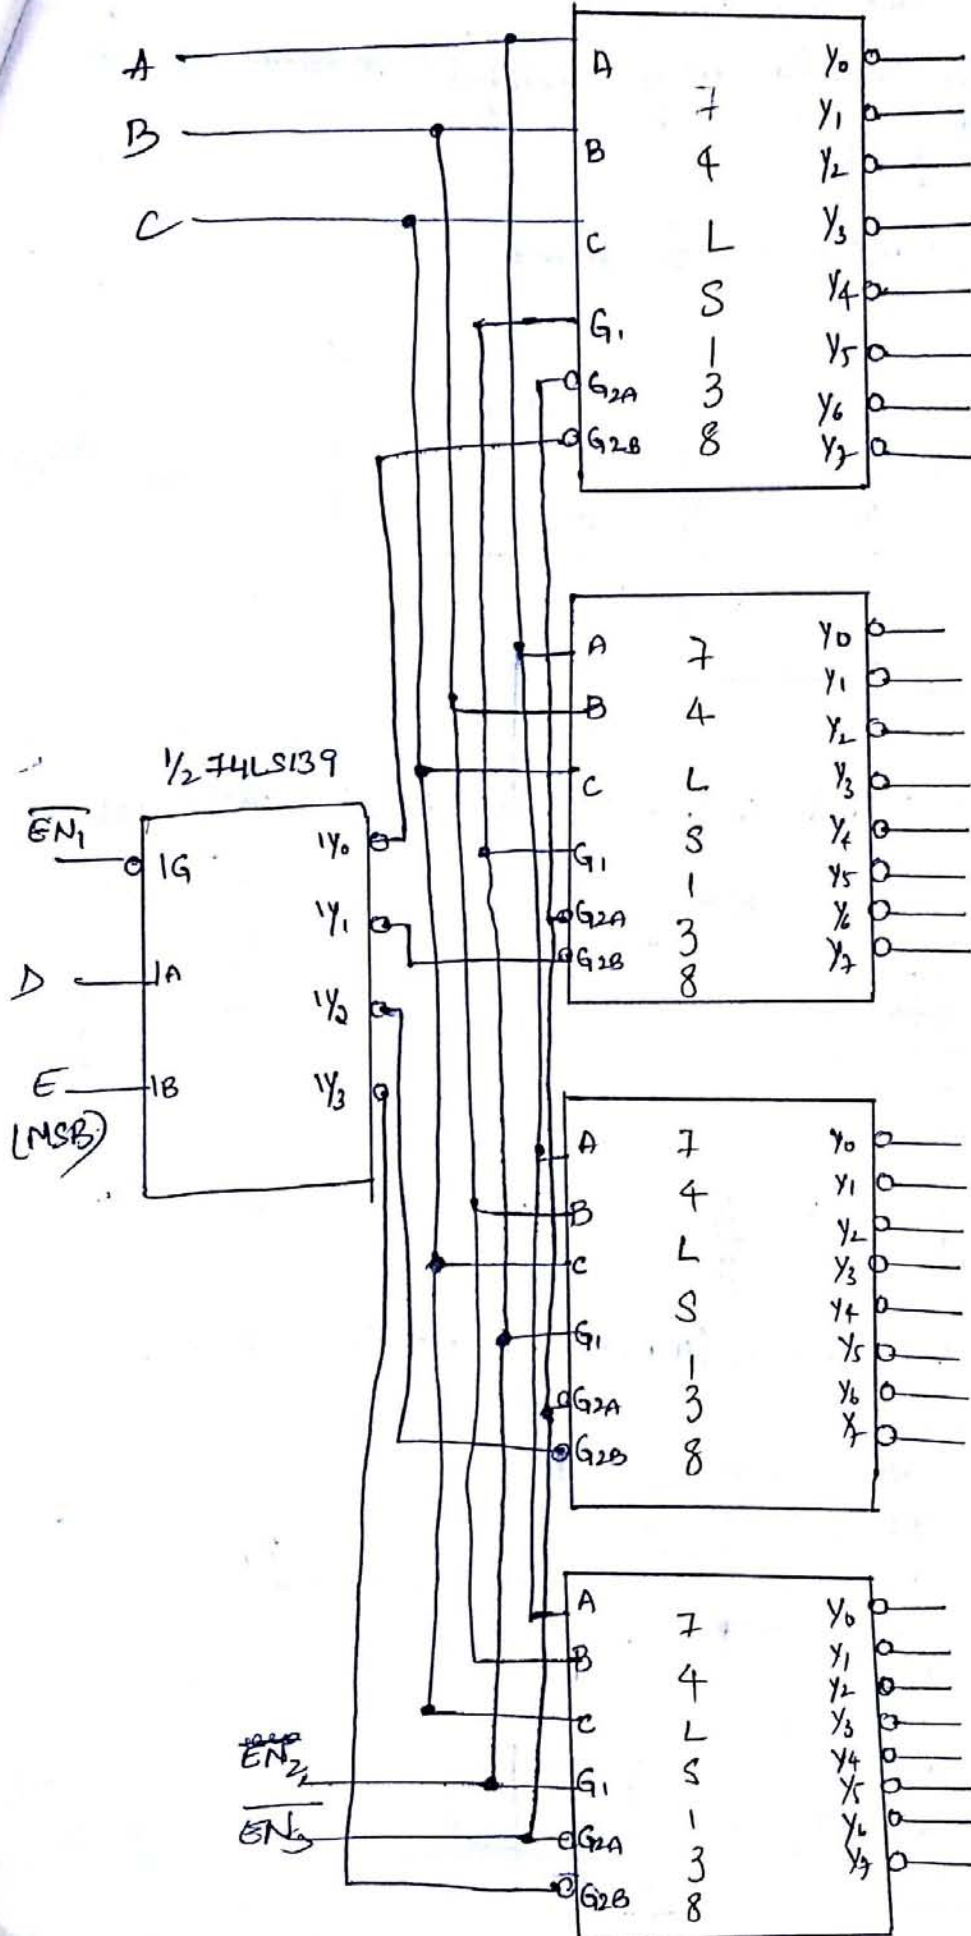 A
B
C
A
B
C
G1
G2A
G2B
7
4
L
S
1
3
8
Y0
Y1
Y2
Y3
Y4
Y5
Y6
Y7
A
B
C
G1
G2A
G2B
7
4
L
S
1
3
8
Y0
Y1
Y2
Y3
Y4
Y5
Y6
Y7
1/2 74LS139
EN1
D
E
(MSB)
1G
1A
1B
1Y0
1Y1
1Y2
1Y3
A
B
C
G1
G2A
G2B
7
4
L
S
1
3
8
Y0
Y1
Y2
Y3
Y4
Y5
Y6
Y7
EN2
EN3
A
B
C
G1
G2A
G2B
7
4
L
S
1
3
8
Y0
Y1
Y2
Y3
Y4
Y5
Y6
Y7